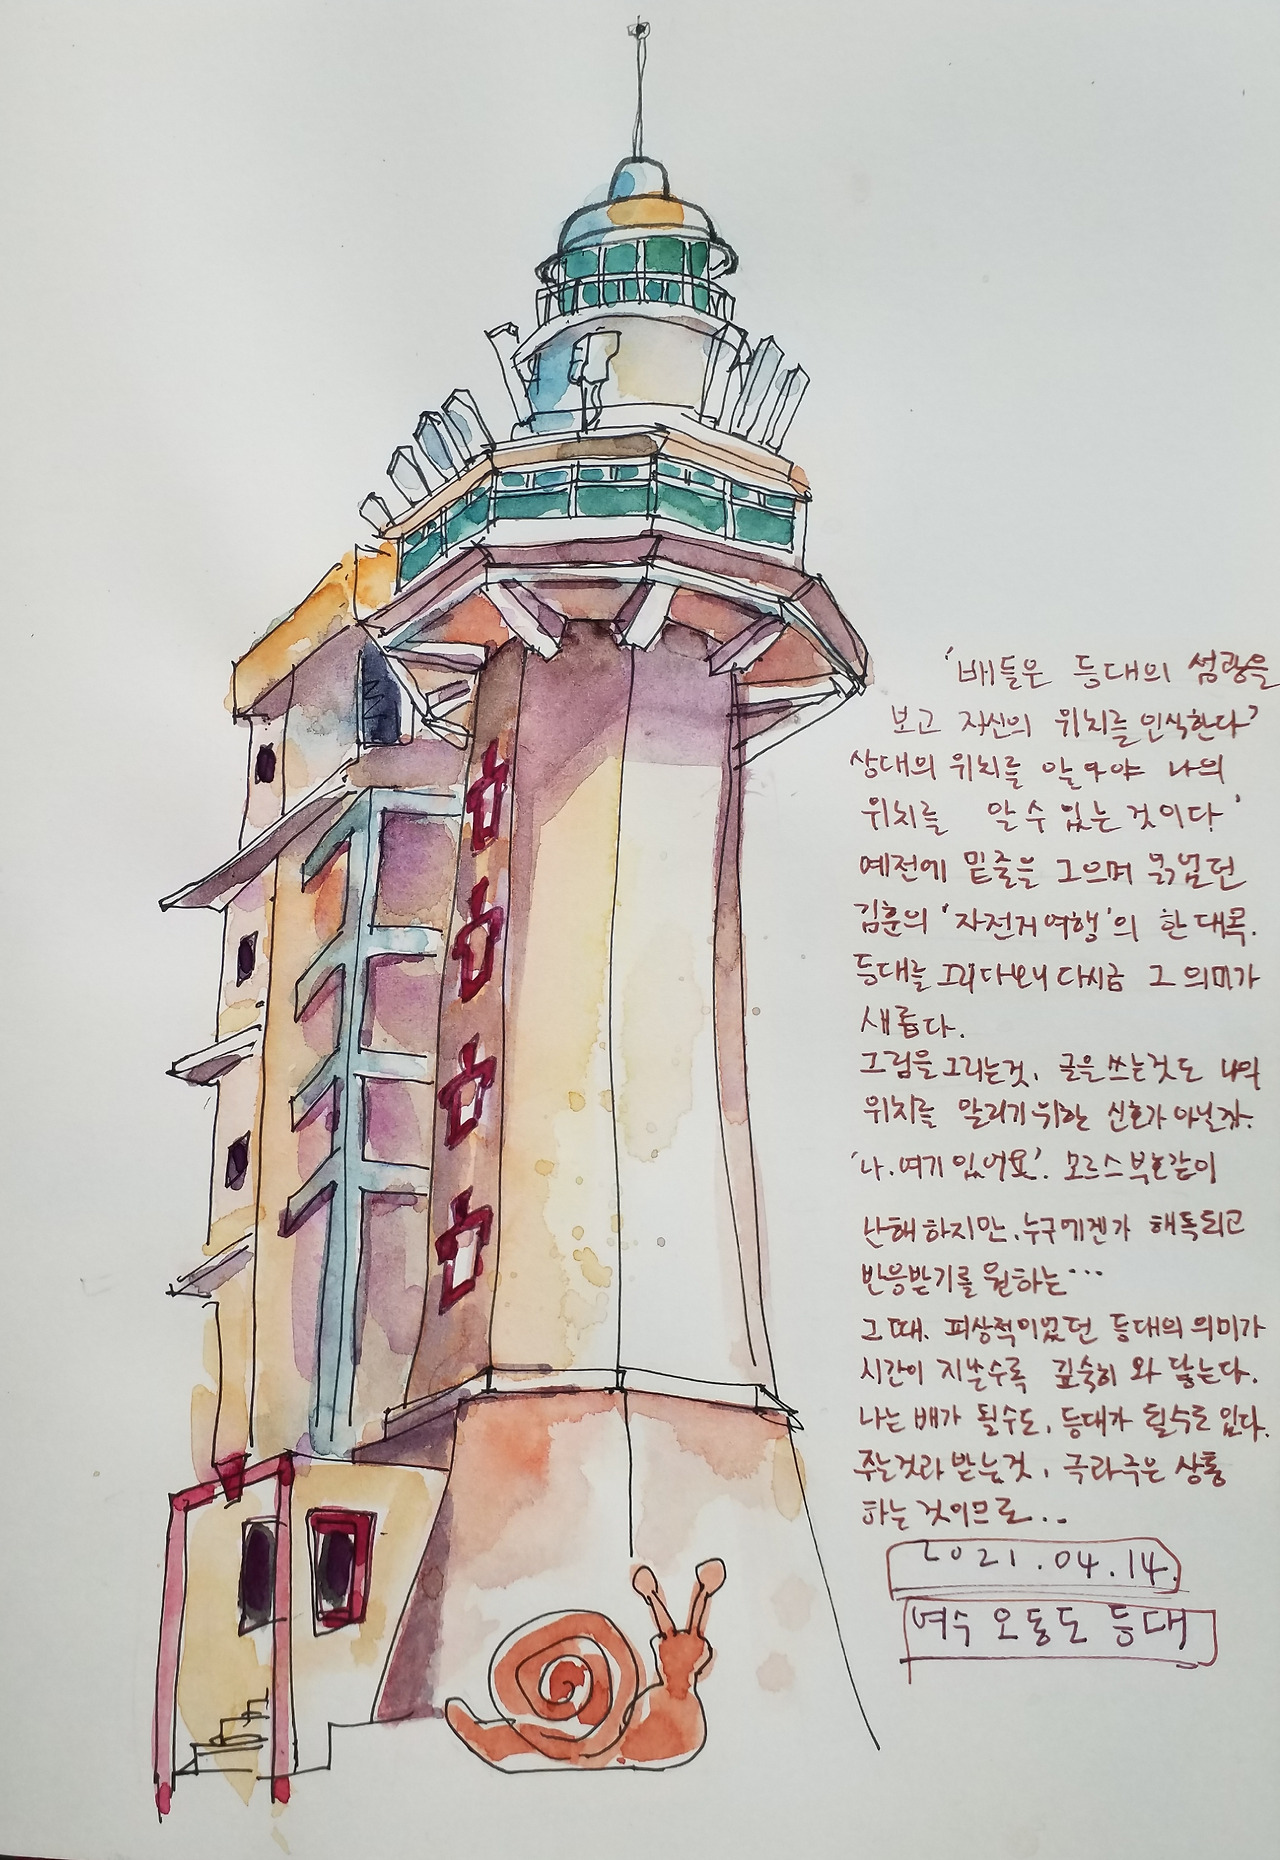 '배들은 등대의 섬광을
보고 자신의 위치를 인식한다'
상대의 위치를 알아야 나의
위치를 알 수 있는 것이다'
예전에 밑줄을 그으며 읽었던
김훈의 '자전거여행'의 한 대목.
등대를 그리다보니 다시금 그 의미가
새롭다.
그림을 그리는것, 글을 쓰는것도 나의
위치를 알리기 위한 신호가 아닐까.
'나. 여기 있어요'. 모르스 부호같이
난해하지만, 누구에겐가 해독되고
반응받기를 원하는...
그때. 피상적이었던 등대의 의미가
시간이 지날수록 깊숙히 와 닿는다.
나는 배가 될수도, 등대가 될수도 있다.
주는것과 받는것, 극과극은 상통
하는 것이므로...
2021.04.14.
여수 오동도 등대